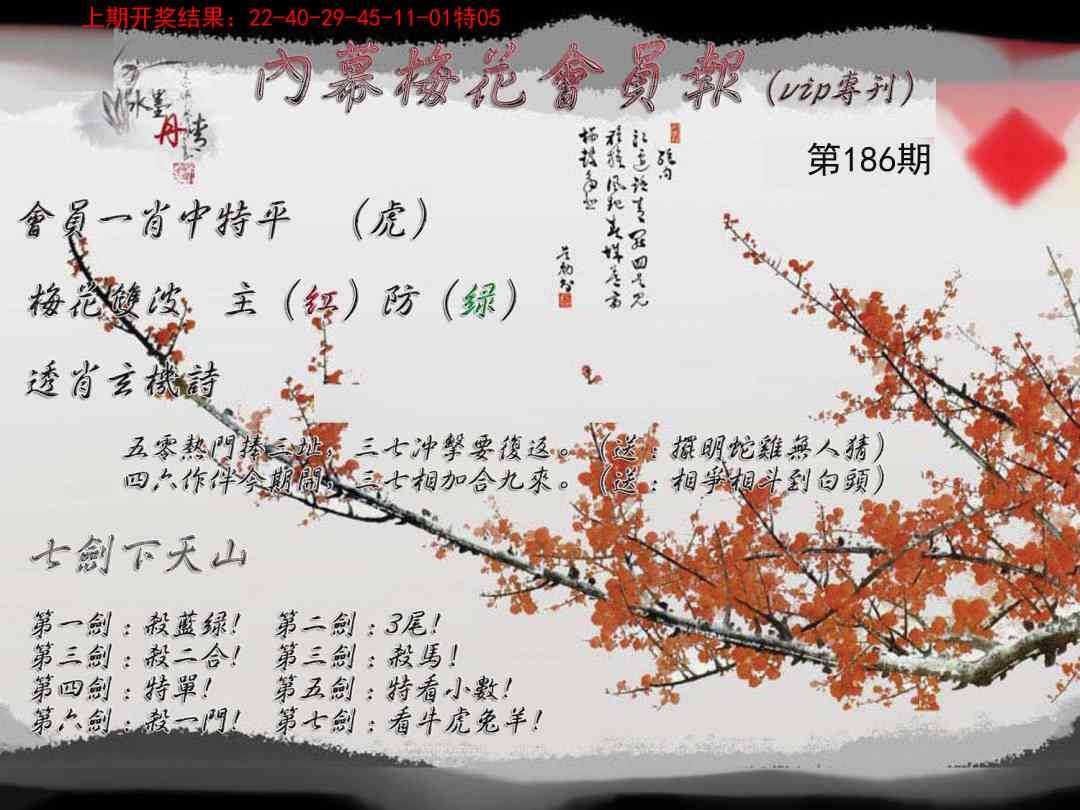 上期开奖结果：22-40-29-45-11-01特05
內幕梅花會員報（vip專刊）
水墨
丹青
第186期
會員一肖中特平 （虎）
梅花雙波 主（红）防（绿）
透肖玄機詩
五零熱門捧三址，三七冲擊要復返。（送：擺明蛇雞無人猜）
四六作伴今期開，三七相加合九來。（送：相爭相斗到白頭）
七劍下天山
第一劍：殺藍绿！ 第二劍：3尾！
第三劍：殺二合！ 第三劍：殺馬！
第四劍：特單！ 第五劍：特看小數！
第六劍：殺一門！ 第七劍：看牛虎兔羊！